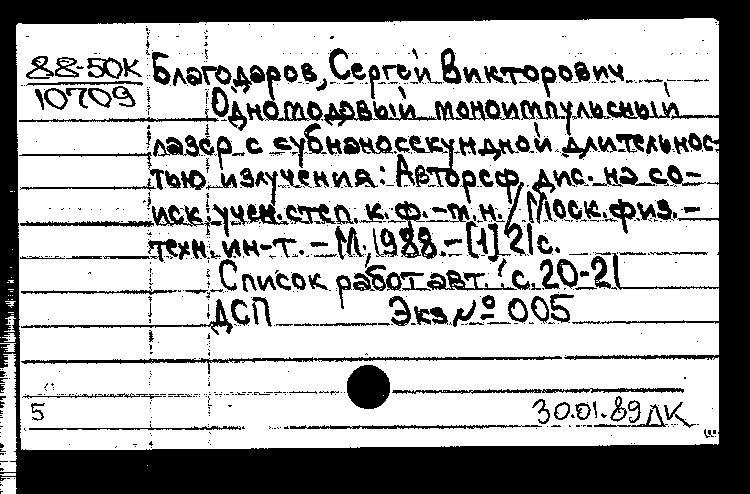 88-50К Благодаров, Сергей Викторович
10709 Одномодовый моноимпульсный
лазер с субнаносекундной длительнос-
тью излучения: Автореф. дис. на со-
иск. учен. степ. к. ф.-м. н. / Моск. физ.-
техн. ин-т. - М., 1988. - [1] 21 с.
Список работ авт.: с. 20-21
ДСП Экз № 005
5 30.01.89 ЛК